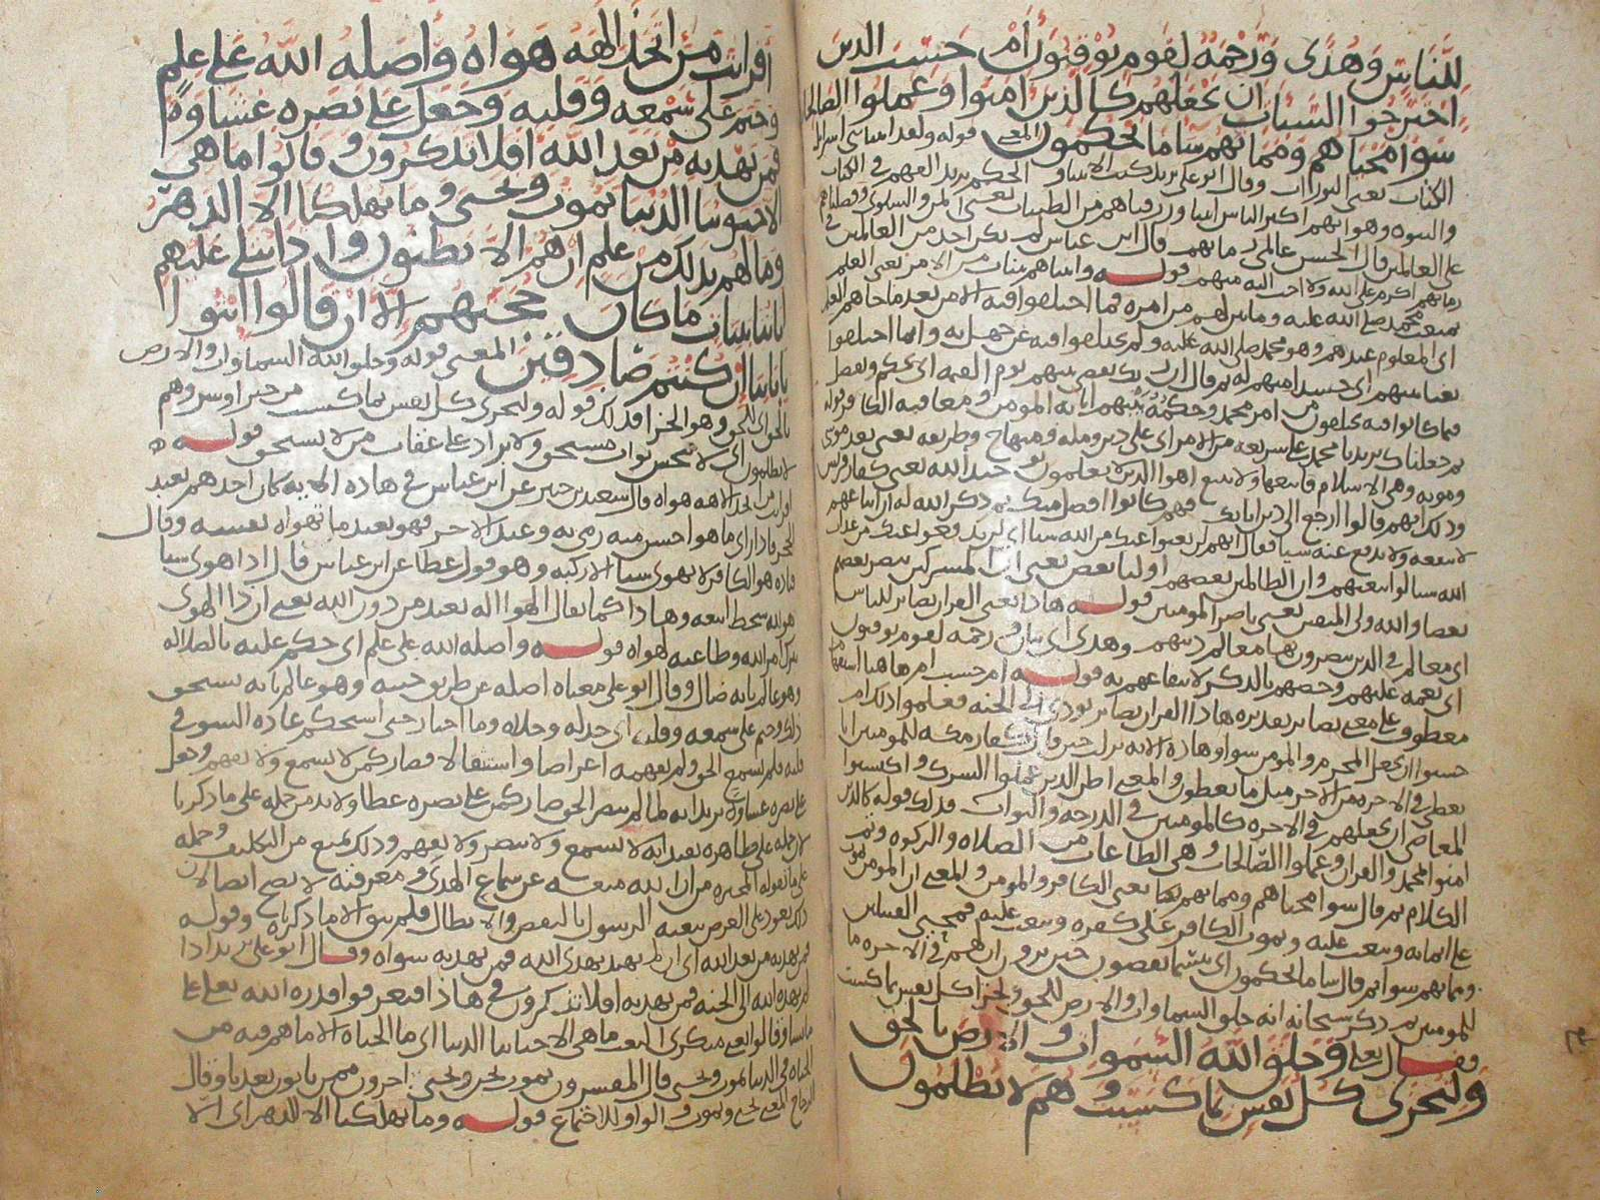 للناس وهدى ورحمة لقوم يوقنون أم حسب الذين
اجترحوا السيئات ان نجعلهم كالذين امنوا وعملوا الصالحات
سوا محياهم ومماتهم سا ما يحكمون المعنى قوله ولقد اتينا بني اسرايل
الكتاب يعني التورات وقال ابو علي يريد كتب الانبيا والحكم يريد الفهم في الكتاب
والنبوه وهو انهم اكثر الناس انبيا ورزقناهم من الطيبات يعني المن والسلوى وفضلناهم
على العالمين قال الحسن عالمي زمانهم قال ابن عباس لم يكن احد من العالمين في
زمانهم اكرم على الله ولا احب اليه منهم قوله واتيناهم بينات من الامر يعني العلم
بمبعث محمد صلى الله عليه وما بين لهم من امره فما اختلفوا فيه الا من بعد ما جاهم العلم
اي المعلوم عندهم وهو محمد صلى الله عليه ولم يختلفوا فيه عن جهل به وانما اختلفوا
بغيا بينهم اي حسدا منهم له ثم قال ان ربك يقضي بينهم يوم القيمه اي يحكم ويفصل
فيما كانوا فيه يختلفون من امر محمد وحكمه فيهم اثابه المومن ومعاقبه الكافر قوله
ثم جعلناك يريد يا محمد على شريعه من الامر اي على دين ومله ومنهاج وطريقه يعني بعد موسى
وقومه وهي الاسلام فاتبعها ولا تتبع اهوا الذين لا يعلمون توحيد الله يعني كفار قريش
وذلك انهم قالوا ارجع الى دين ابايك فهم كانوا افضل منك ثم ذكر الله له ان اتباعهم
لا ينفعه ولا يدفع عنه شيا فقال انهم لن يغنوا عنك من الله شيا اي لن يدفعوا عنك من عذاب
الله شيا لو اتبعتهم وان الظالمين بعضهم اوليا بعض يعني ان المشركين ينصر بعضهم
بعضا والله ولي المتقين يعني ناصر المومنين قوله هاذا يعني القران بصاير للناس
اي معالم في الدين يبصرون بها معالم دينهم وهدى اي بيان ورحمه لقوم يوقنون
اي نعمه عليهم وخصهم بالذكر لانتفاعهم به قوله ام حسب ام هاهنا استفهام
معطوف على معنى بصاير تقديره هاذا القران بصاير تودي الى الجنه فعلموا ذلك ام
حسبوا ان نجعل المجرم والمومن سوا وهاذه الايه نزلت حين قال كفار مكه للمومنين انا
نعطى في الاخره من الاجر مثل ما تعطون والمعنى اظن الذين عملوا الشرك واكتسبوا
المعاصي ان نجعلهم في الاخره كالمومنين في الدرجه والثواب فذلك قوله كالذين
امنوا بمحمد والقران وعملوا الصالحات وهي الطاعات من الصلاه والزكوه وتم
الكلام ثم قال سوا محياهم ومماتهم يعني الكافر والمومن والمعنى ان المومن يموت
على ايمانه ويبعث عليه ويموت الكافر على كفره ويبعث عليه فمحيى القبيلين
ومماتهم سوا ثم قال سا ما يحكمون اي بيسما يقضون حين يرون ان لهم في الاخره ما
للمومنين ثم ذكر سبحانه انه خلق السماوات والارض للحق وليجزا كل نفس بما كسبت
فقال تعلى وخلق الله السموات والارض بالحق
ولتجزى كل نفس بما كسبت وهم لا يظلمون
افرايت من اتخذ الهه هواه واضله الله على علم
وختم على سمعه وقلبه وجعل على بصره غشاوة
فمن يهديه من بعد الله افلا تذكرون وقالوا ما هي
الا حيوتنا الدنيا نموت ونحيى وما يهلكنا الا الدهر
وما لهم بذلك من علم ان هم الا يظنون واذا تتلى عليهم
اياتنا بينات ما كان حجتهم الا ان قالوا ائتوا
باباينا ان كنتم صادقين المعنى قوله وخلق الله السماوات والارض
بالحق اي للحق وهو الجزا فذلك قوله ولتجزى كل نفس بما كسبت من خير او شر وهم
لا يظلمون اي لا يبخس ثواب مستحق ولا يزاد على عقاب من لا يستحق قوله
افرايت من اتخذ الاهه هواه قال سعيد بن جبير عن ابن عباس في هاذه الايه كان احدهم يعبد
الحجر فاذا راى ما هو احسن منه رمى به وعبد الاخر فهو يعبد ما تهواه نفسه وقال
قتاده هو الكافر لا يهوى شيا الا ركبه وهو قول عطا عن ابن عباس قال اذا هوى شيا
هو لله سخط اتبعه وهاذا كما يقال الهوا اله يعبد من دون الله يعني ان ذا الهوى
يترك امر الله وطاعته لهواه قوله واضله الله على علم اي حكم عليه بالضلاله
وهو عالم بانه ضال وقال ابو علي معناه اضله عن طريق جنته وهو عالم بانه يستحق
ذلك وختم على سمعه وقلبه اي خذله وخلاه وما اختار حتى استحكم عاده السو في
قلبه فلم يسمع الحق ولم يفهمه اعراضا واستثقالا فصار كمن لا يسمع ولا يفهم وجعل
على بصره غشاوة يريد انه لما لم يبصر الحق صار كمن على بصره غطا ولا بد من حمله على ما ذكرنا
لان حمله على ظاهره يفيد انه لا يسمع ولا يبصر ولا يفهم وذلك يمنع من التكليف وحمله
على ما تقوله المجبره من ان الله منعه عن سماع الهدى ومعرفته لا يصح ايضا لان
ذلك يعود على الغرض ببعثه الرسول بالنقض والابطال فلم يبق الا ما ذكرناه وقوله
فمن يهديه من بعد الله اي ان لم يهتد بهدى الله فمن يهديه سواه وقال ابو علي يريد اذا
لم يهده الله الى الجنه فمن يهديه افلا تذكرون في هاذا فتعرفوا قدره الله تعلى على
ما يشا وقالوا يعني منكري البعث ما هي الا حياتنا الدنيا اي ما الحياه الا ما هم فيه من
الحياه في الدنيا نموت ونحيى قال المفسرون نموت نحن ويحيى اخرون ممن ياتون بعدنا وقال
الزجاج المعنى نحيى ونموت والواو للاجتماع قوله وما يهلكنا الا الدهر اي الا